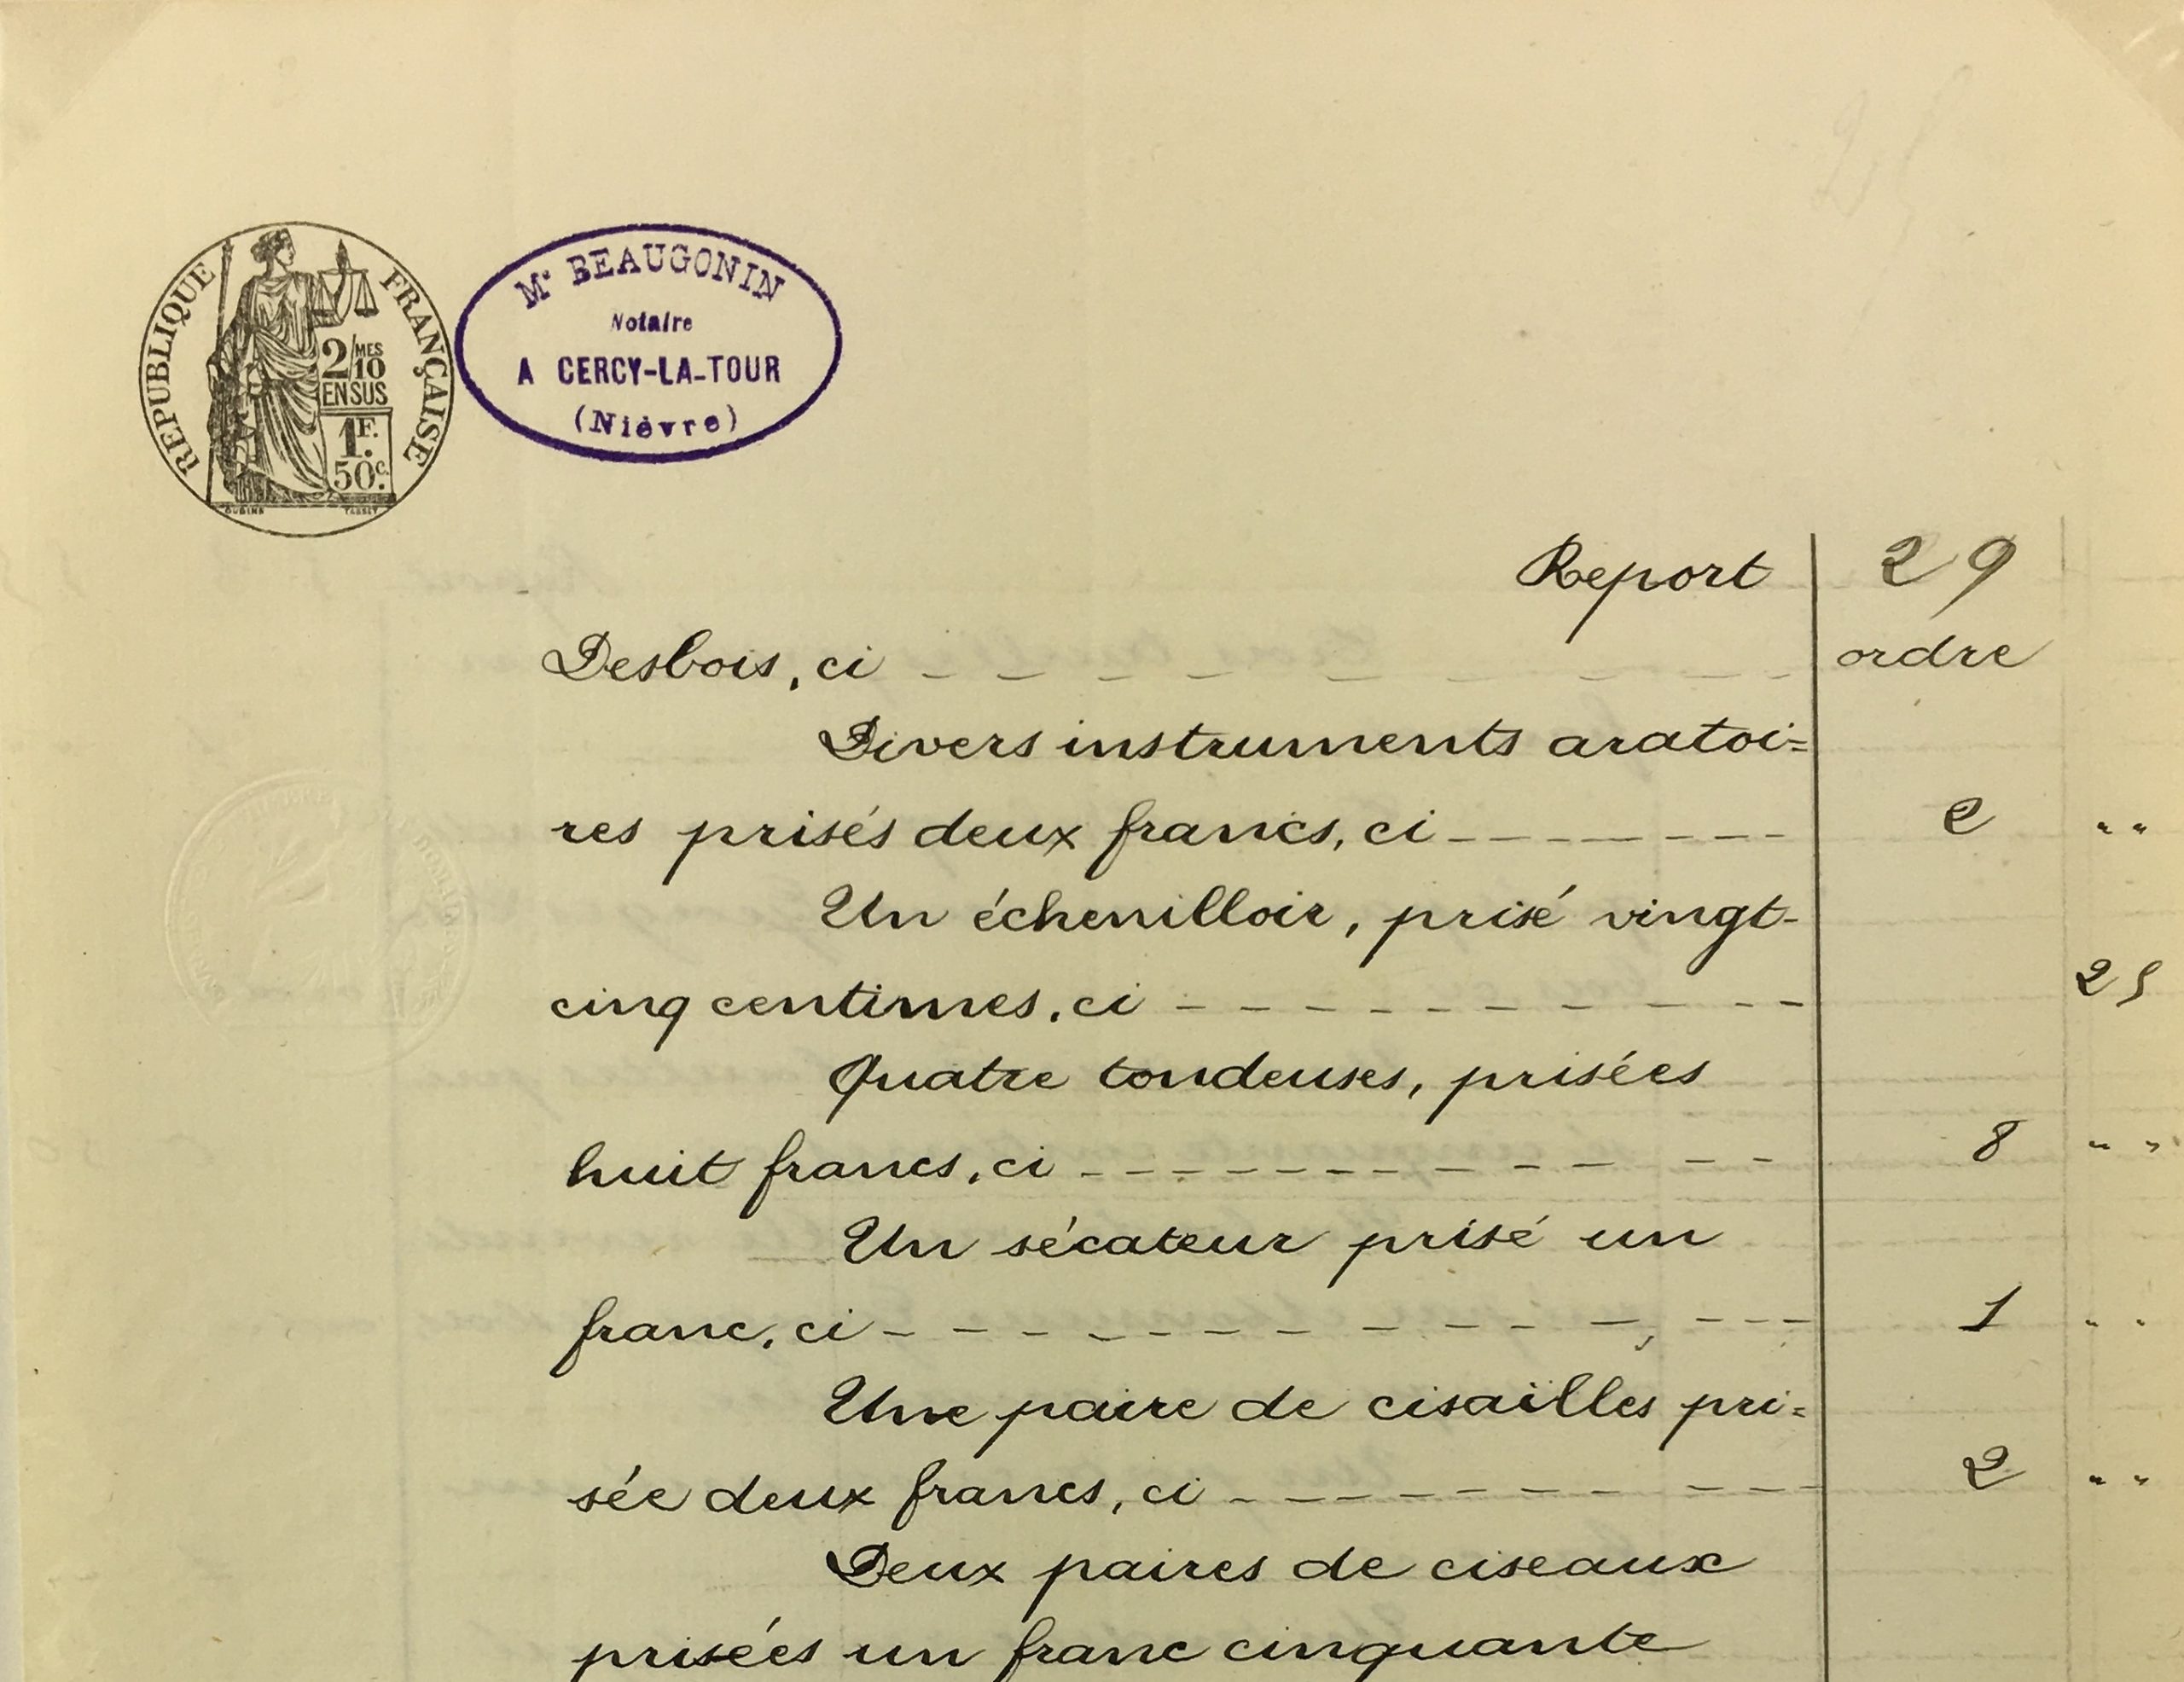 RÉPUBLIQUE FRANÇAISE
2/MES
10
EN SUS
1F.
50c.
OUDINÉ TASSET
Me BEAUGONIN
Notaire
A CERCY-LA-TOUR
(Nièvre)
25
Report 29
Desbois, ci ordre
Divers instruments aratoi=
res prisés deux francs, ci 2 " "
Un échenilloir, prisé vingt-
cinq centimes, ci 25
Quatre tondeuses, prisées
huit francs, ci 8 " "
Un sécateur prisé un
franc, ci 1 " "
Une paire de cisailles pri=
sée deux francs, ci 2 " "
Deux paires de ciseaux
prisées un franc cinquante